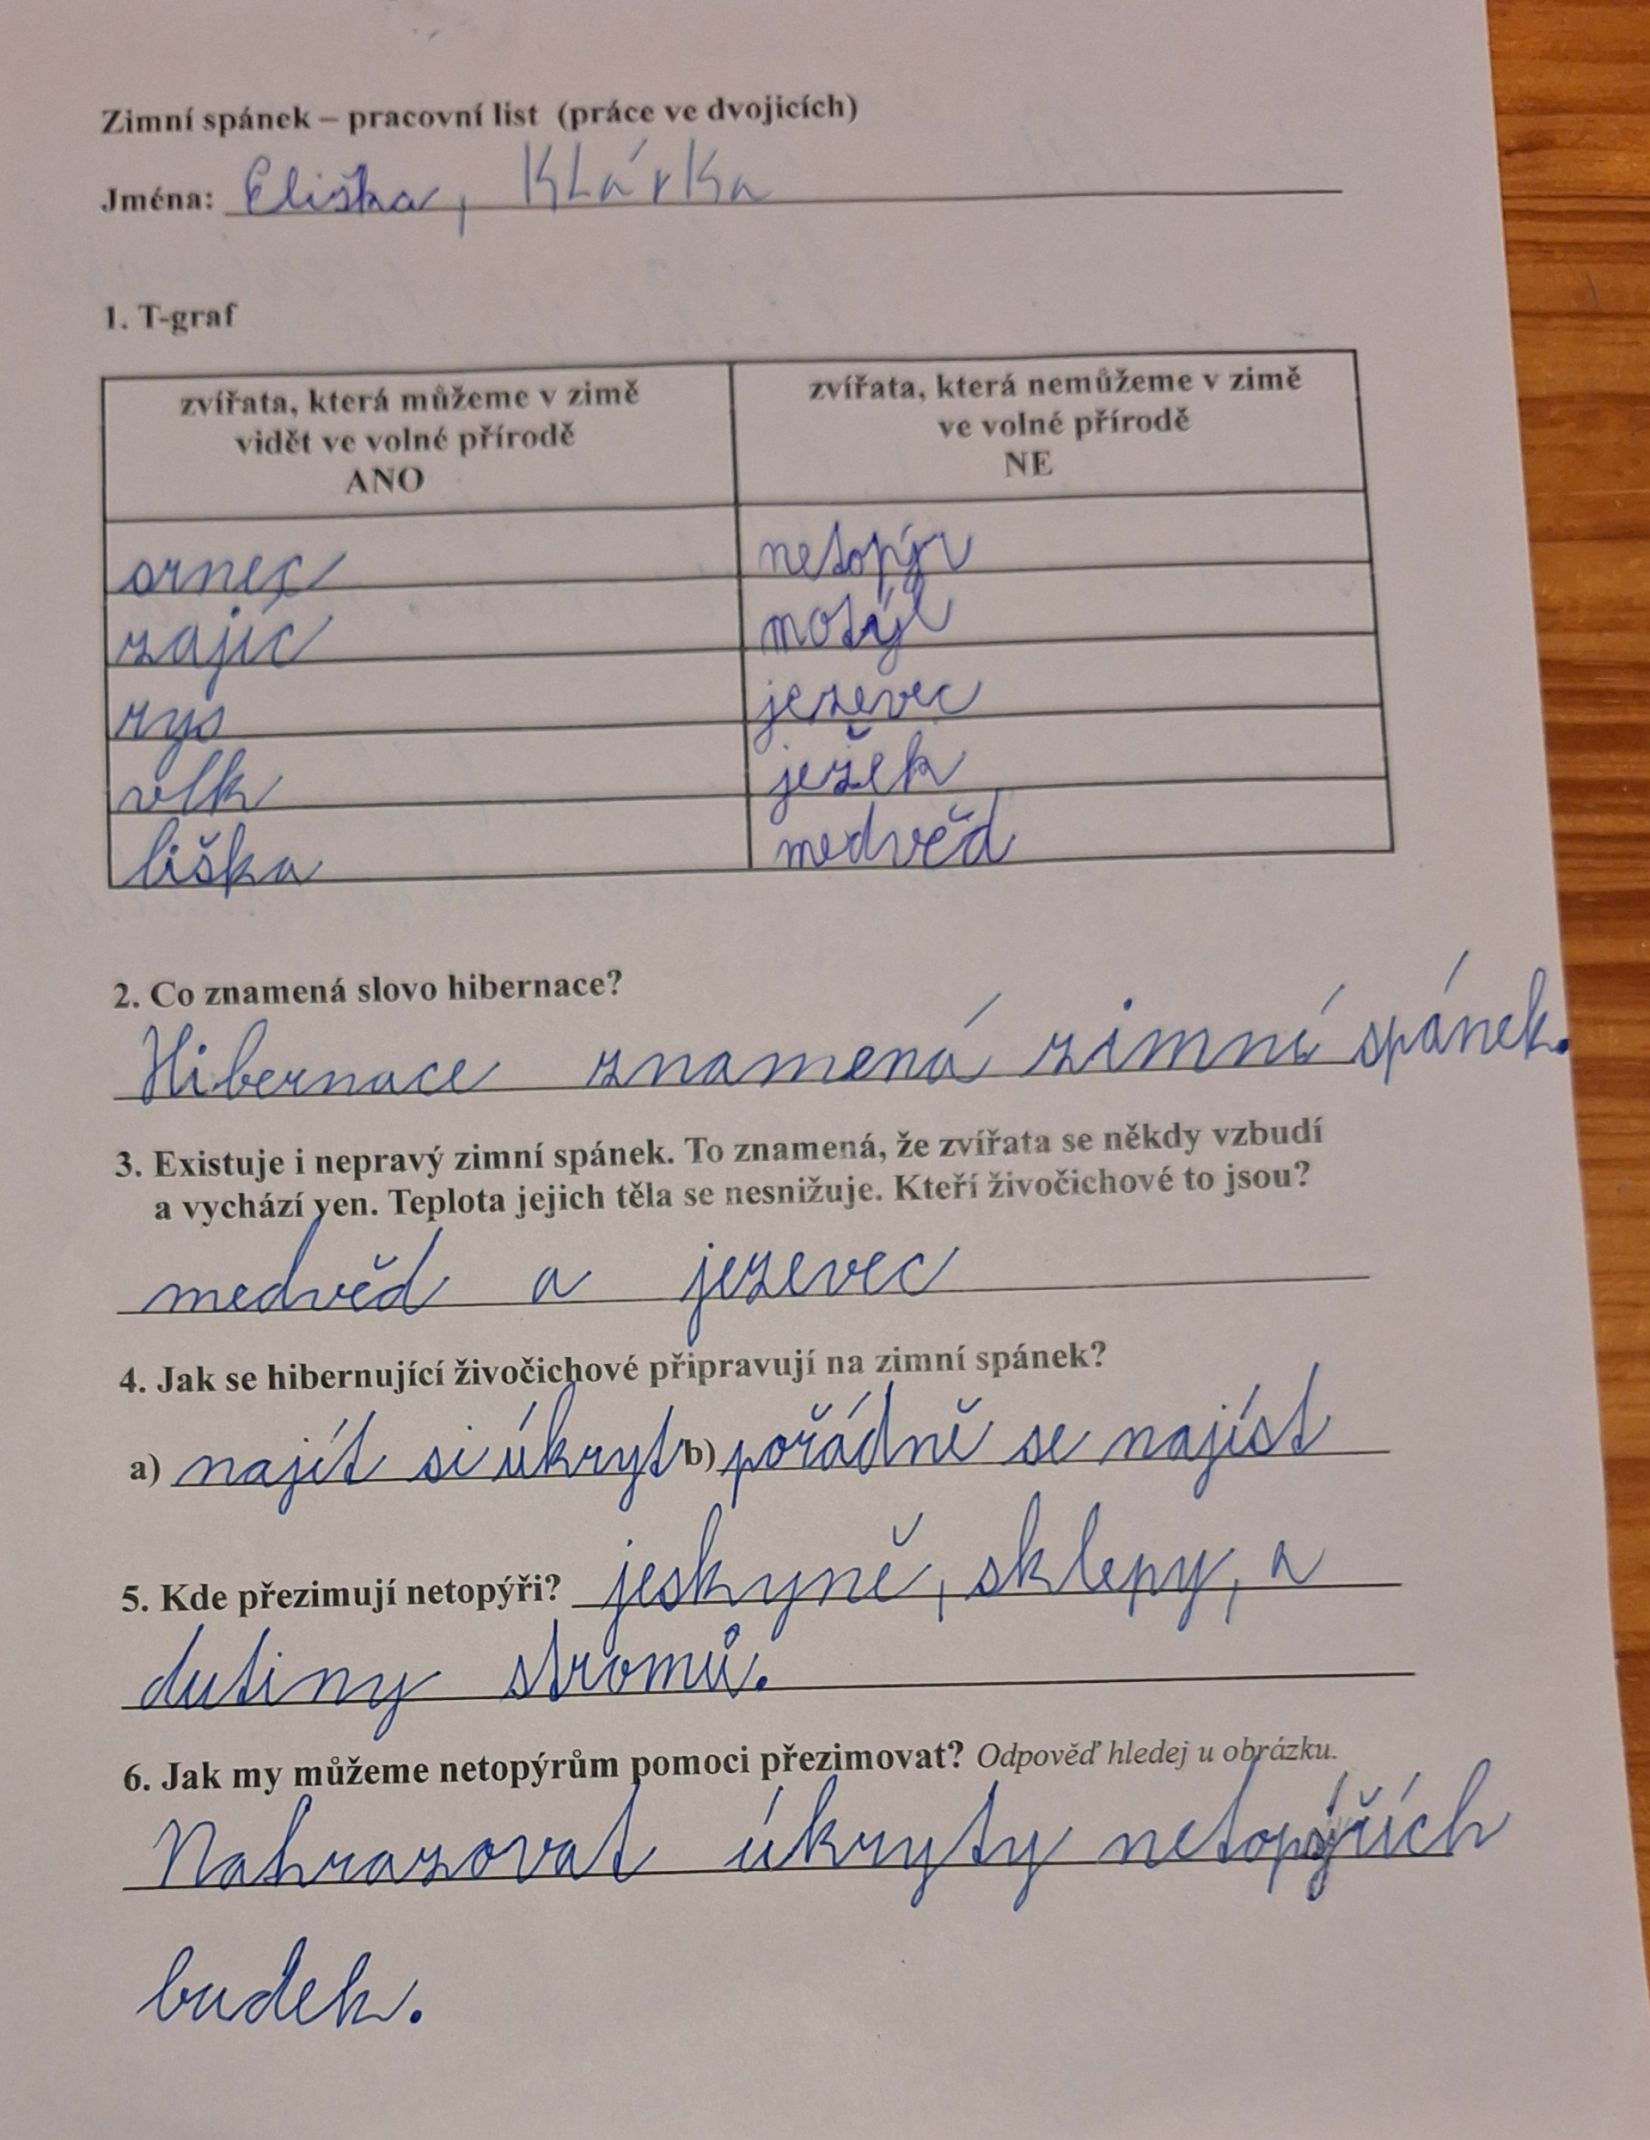 Zimní spánek – pracovní list (práce ve dvojicích)
Jména: Eliška, Klárka
1. T-graf
zvířata, která můžeme v zimě zvířata, která nemůžeme v zimě
vidět ve volné přírodě ve volné přírodě
ANO NE
netopýr
zajíc motýl
rys jezevec
vlk ježek
liška medvěd
2. Co znamená slovo hibernace?
Hibernace znamená zimní spánek.
3. Existuje i nepravý zimní spánek. To znamená, že zvířata se někdy vzbudí
a vychází ven. Teplota jejich těla se nesnižuje. Kteří živočichové to jsou?
medvěd a jezevec
4. Jak se hibernující živočichové připravují na zimní spánek?
a) najít si úkryt b) pořádně se najíst
5. Kde přezimují netopýři? jeskyně, sklepy, a
dutiny stromů.
6. Jak my můžeme netopýrům pomoci přezimovat? Odpověď hledej u obrázku.
Nahrazovat úkryty netopýřích
budek.